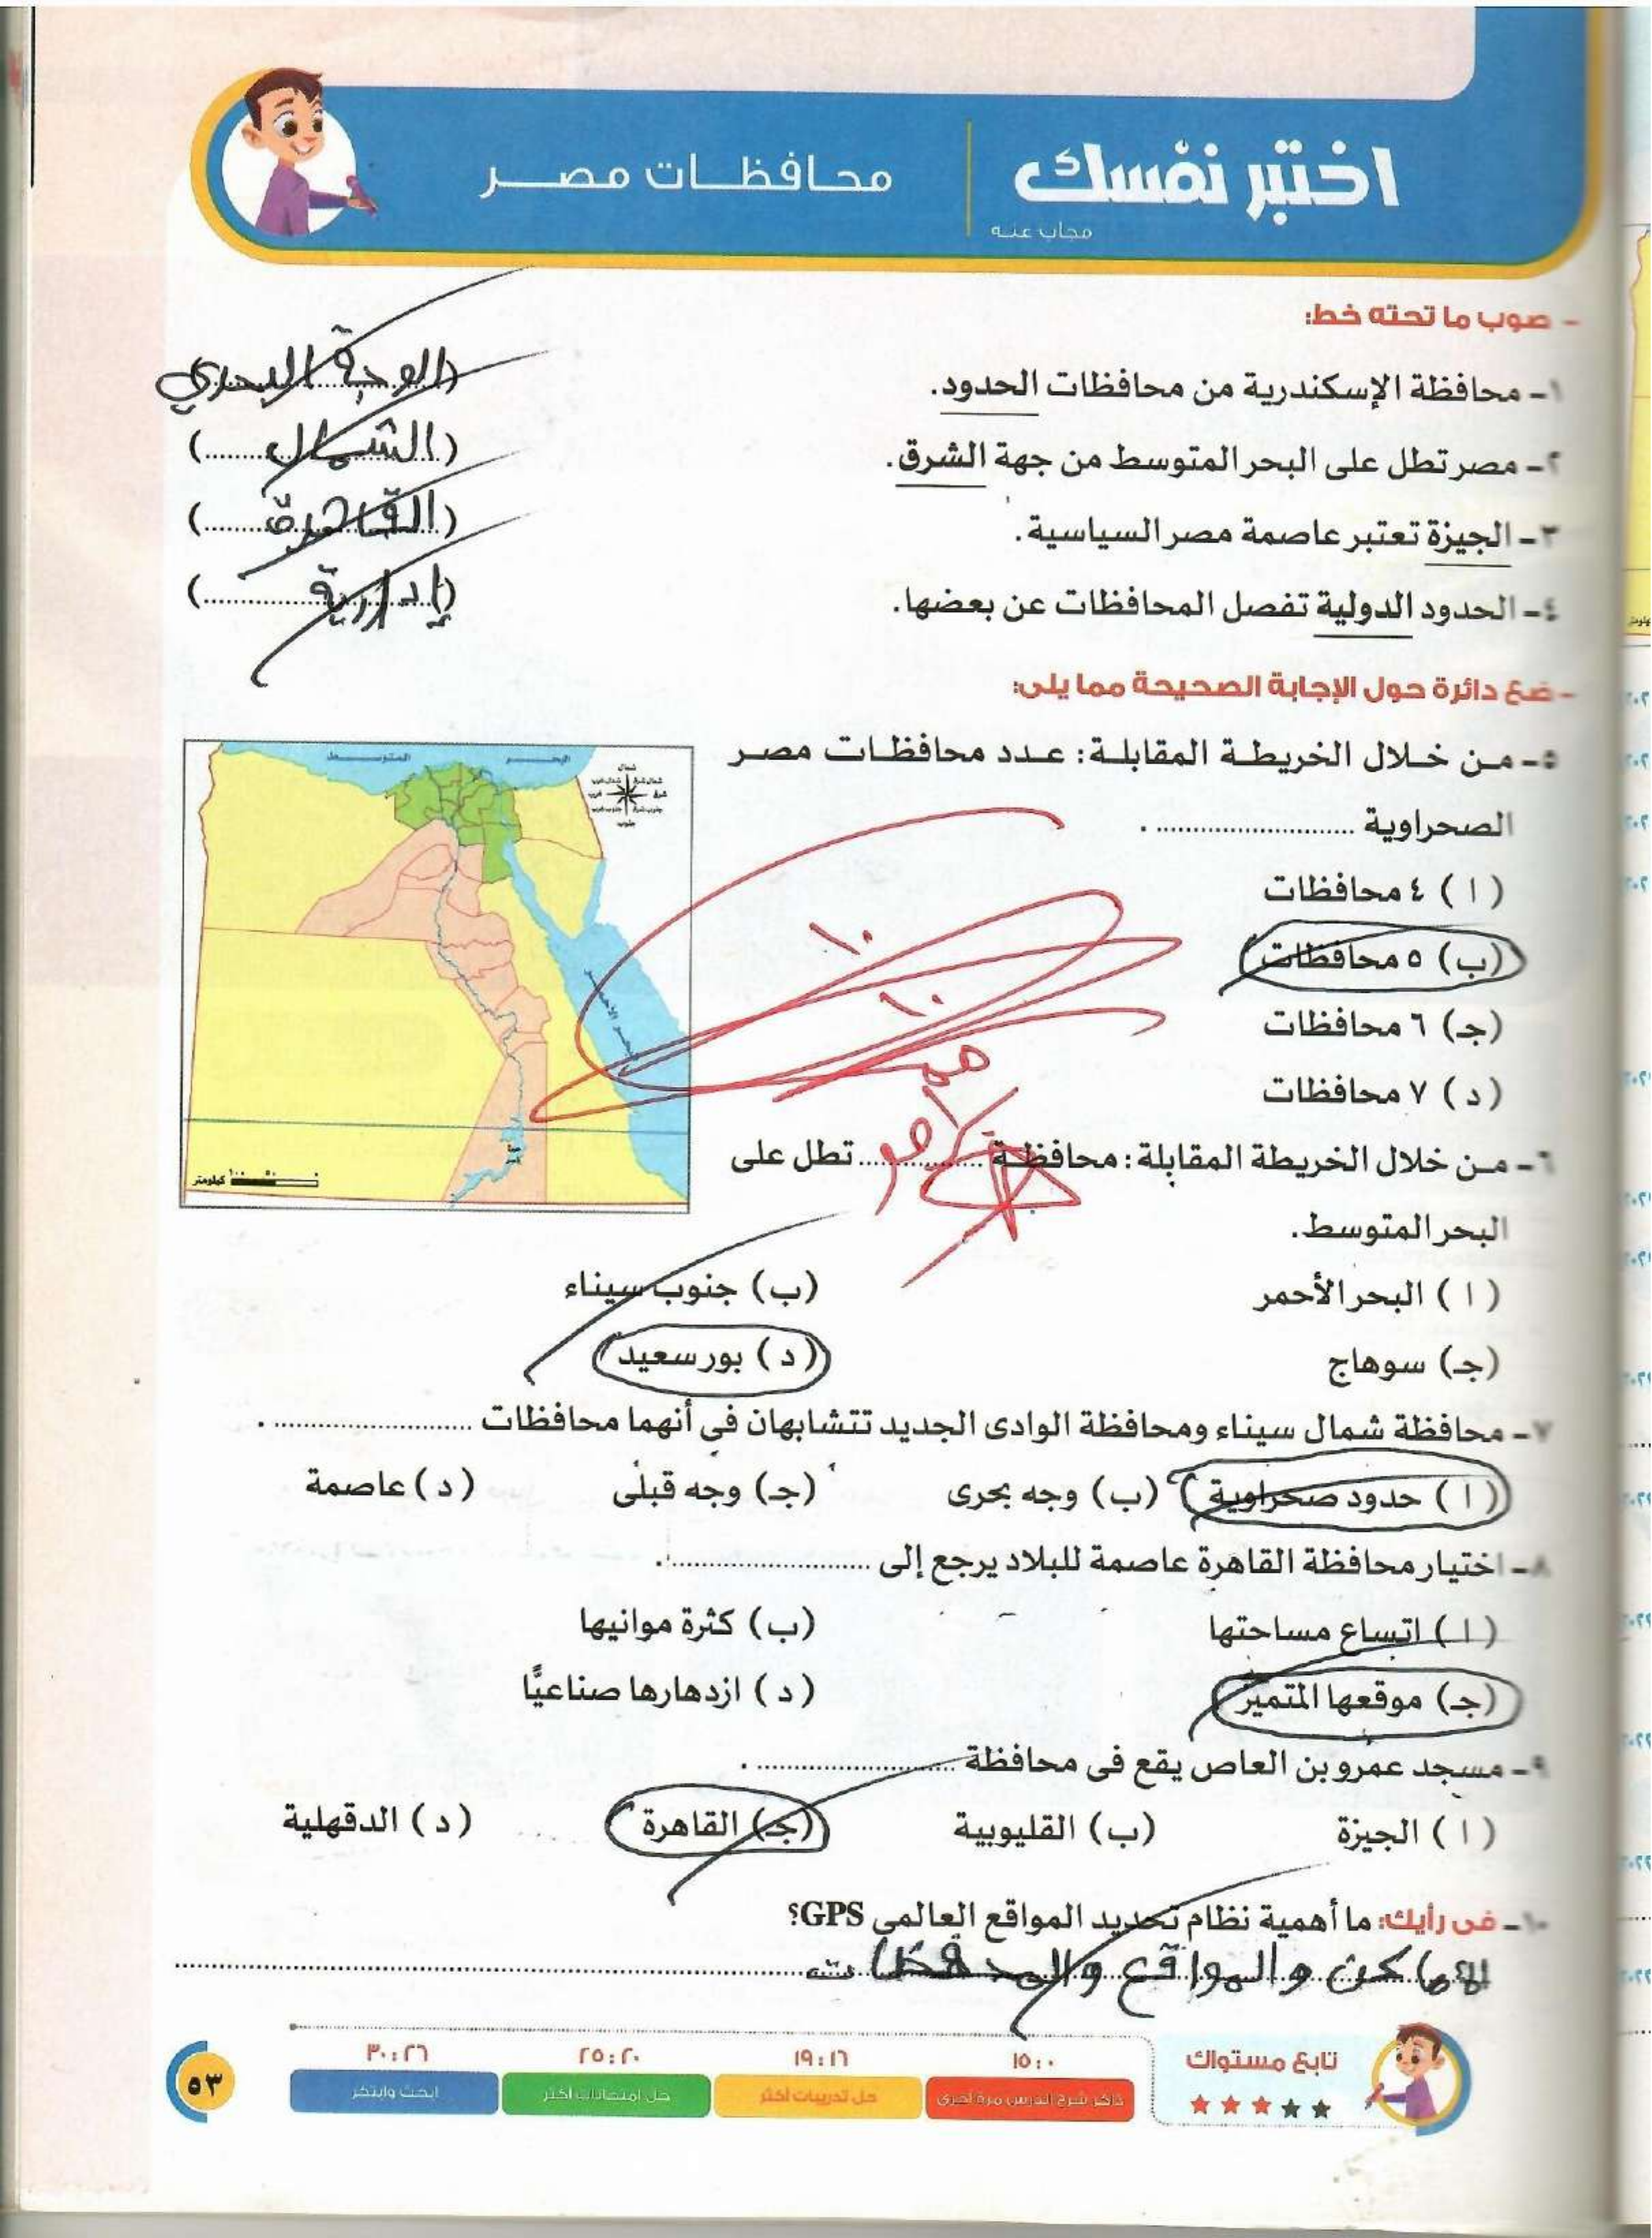 اختبر نفسك
محافظات مصر
مجاب عنه
- صوب ما تحته خط:
١- محافظة الإسكندرية من محافظات الحدود. (الوجة البحري)
٢- مصر تطل على البحر المتوسط من جهة الشرق. (الشمال)
٣- الجيزة تعتبر عاصمة مصر السياسية. (القاهرة)
٤- الحدود الدولية تفصل المحافظات عن بعضها. (إدارية)
- ضع دائرة حول الإجابة الصحيحة مما يلى:
٥- من خلال الخريطة المقابلة: عدد محافظات مصر
الصحراوية .......................... .
(ا) ٤ محافظات
(ب) ٥ محافظات
(جـ) ٦ محافظات
(د) ٧ محافظات
البحر المتوسط
شمال
شرق
غرب
جنوب
البحر الأحمر
كيلومتر
١٠
١٠
٦- من خلال الخريطة المقابلة: محافظة .................. تطل على
البحر المتوسط.
(ا) البحر الأحمر (ب) جنوب سيناء
(جـ) سوهاج (د) بورسعيد
٧- محافظة شمال سيناء ومحافظة الوادى الجديد تتشابهان فى أنهما محافظات .......................... .
(ا) حدود صحراوية (ب) وجه بحرى (جـ) وجه قبلى (د) عاصمة
٨- اختيار محافظة القاهرة عاصمة للبلاد يرجع إلى .......................... .
(ا) اتساع مساحتها (ب) كثرة موانيها
(جـ) موقعها المتميز (د) ازدهارها صناعيًّا
٩- مسجد عمرو بن العاص يقع فى محافظة .......................... .
(ا) الجيزة (ب) القليوبية (جـ) القاهرة (د) الدقهلية
١٠- فى رأيك: ما أهمية نظام تحديد المواقع العالمى GPS؟
الاماكن والمواقع والمحفظات
تابع مستواك
١٥:٠ ١٩:١٦ ٢٥:٢٠ ٣٠:٢٦
ذاكر شرح الدرس مرة أخرى حل تدريبات أكثر حل امتحانات أكثر ابحث وابتكر
٥٣